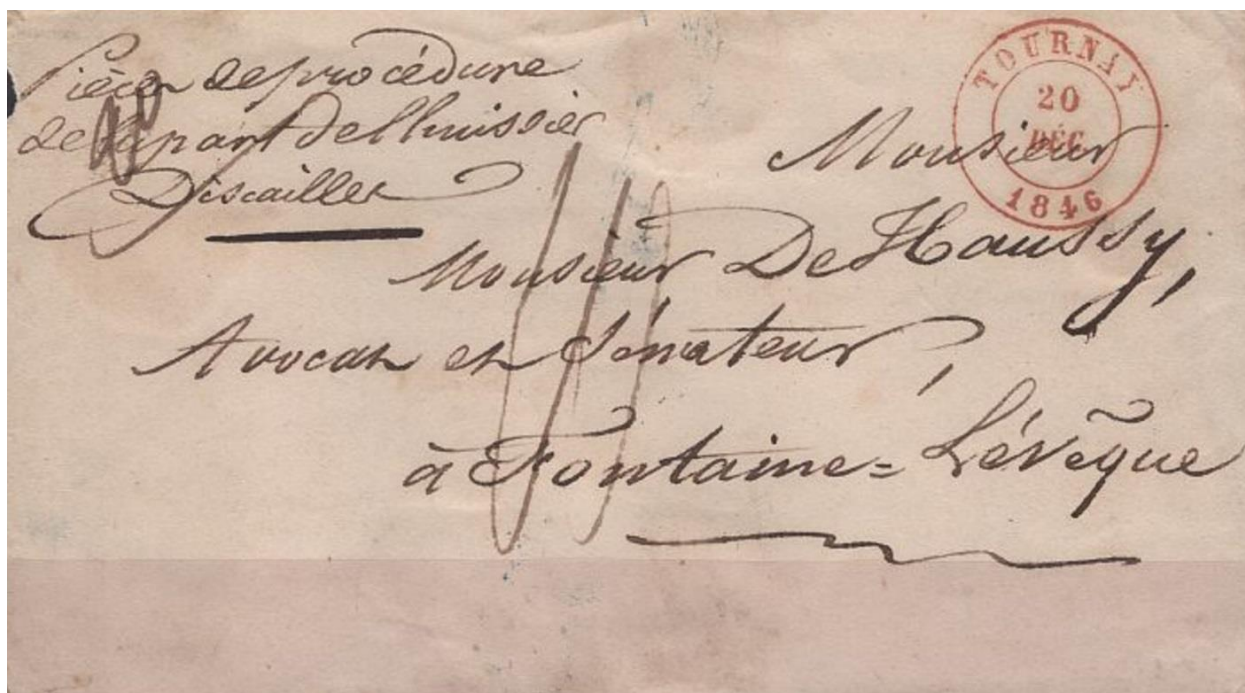 Pièces de procédure
de la part de l'huissier
Discailles
TOURNAY
20
DÉC
1846
Monsieur
Monsieur De Haussy,
Avocat et Sénateur,
à Fontaine=Lévêque